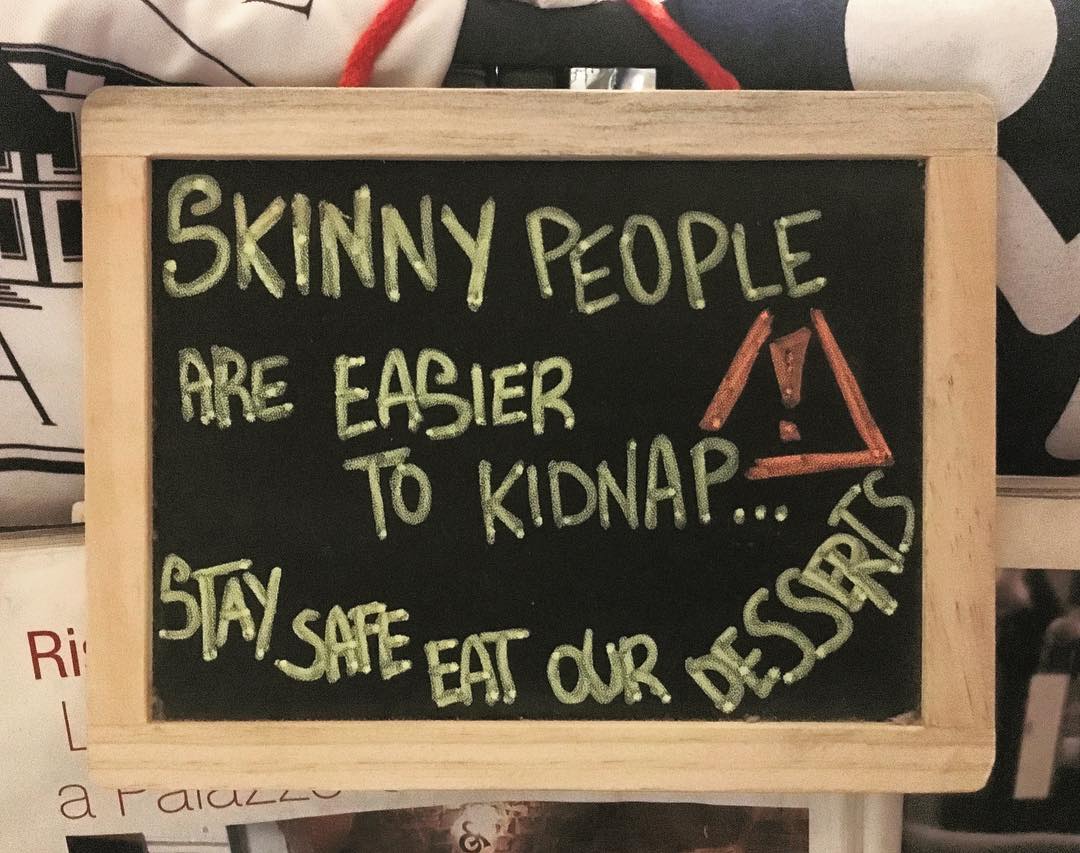 SKINNY PEOPLE
ARE EASIER
TO KIDNAP...
!
STAY SAFE EAT OUR DESSERTS
a Palazzo